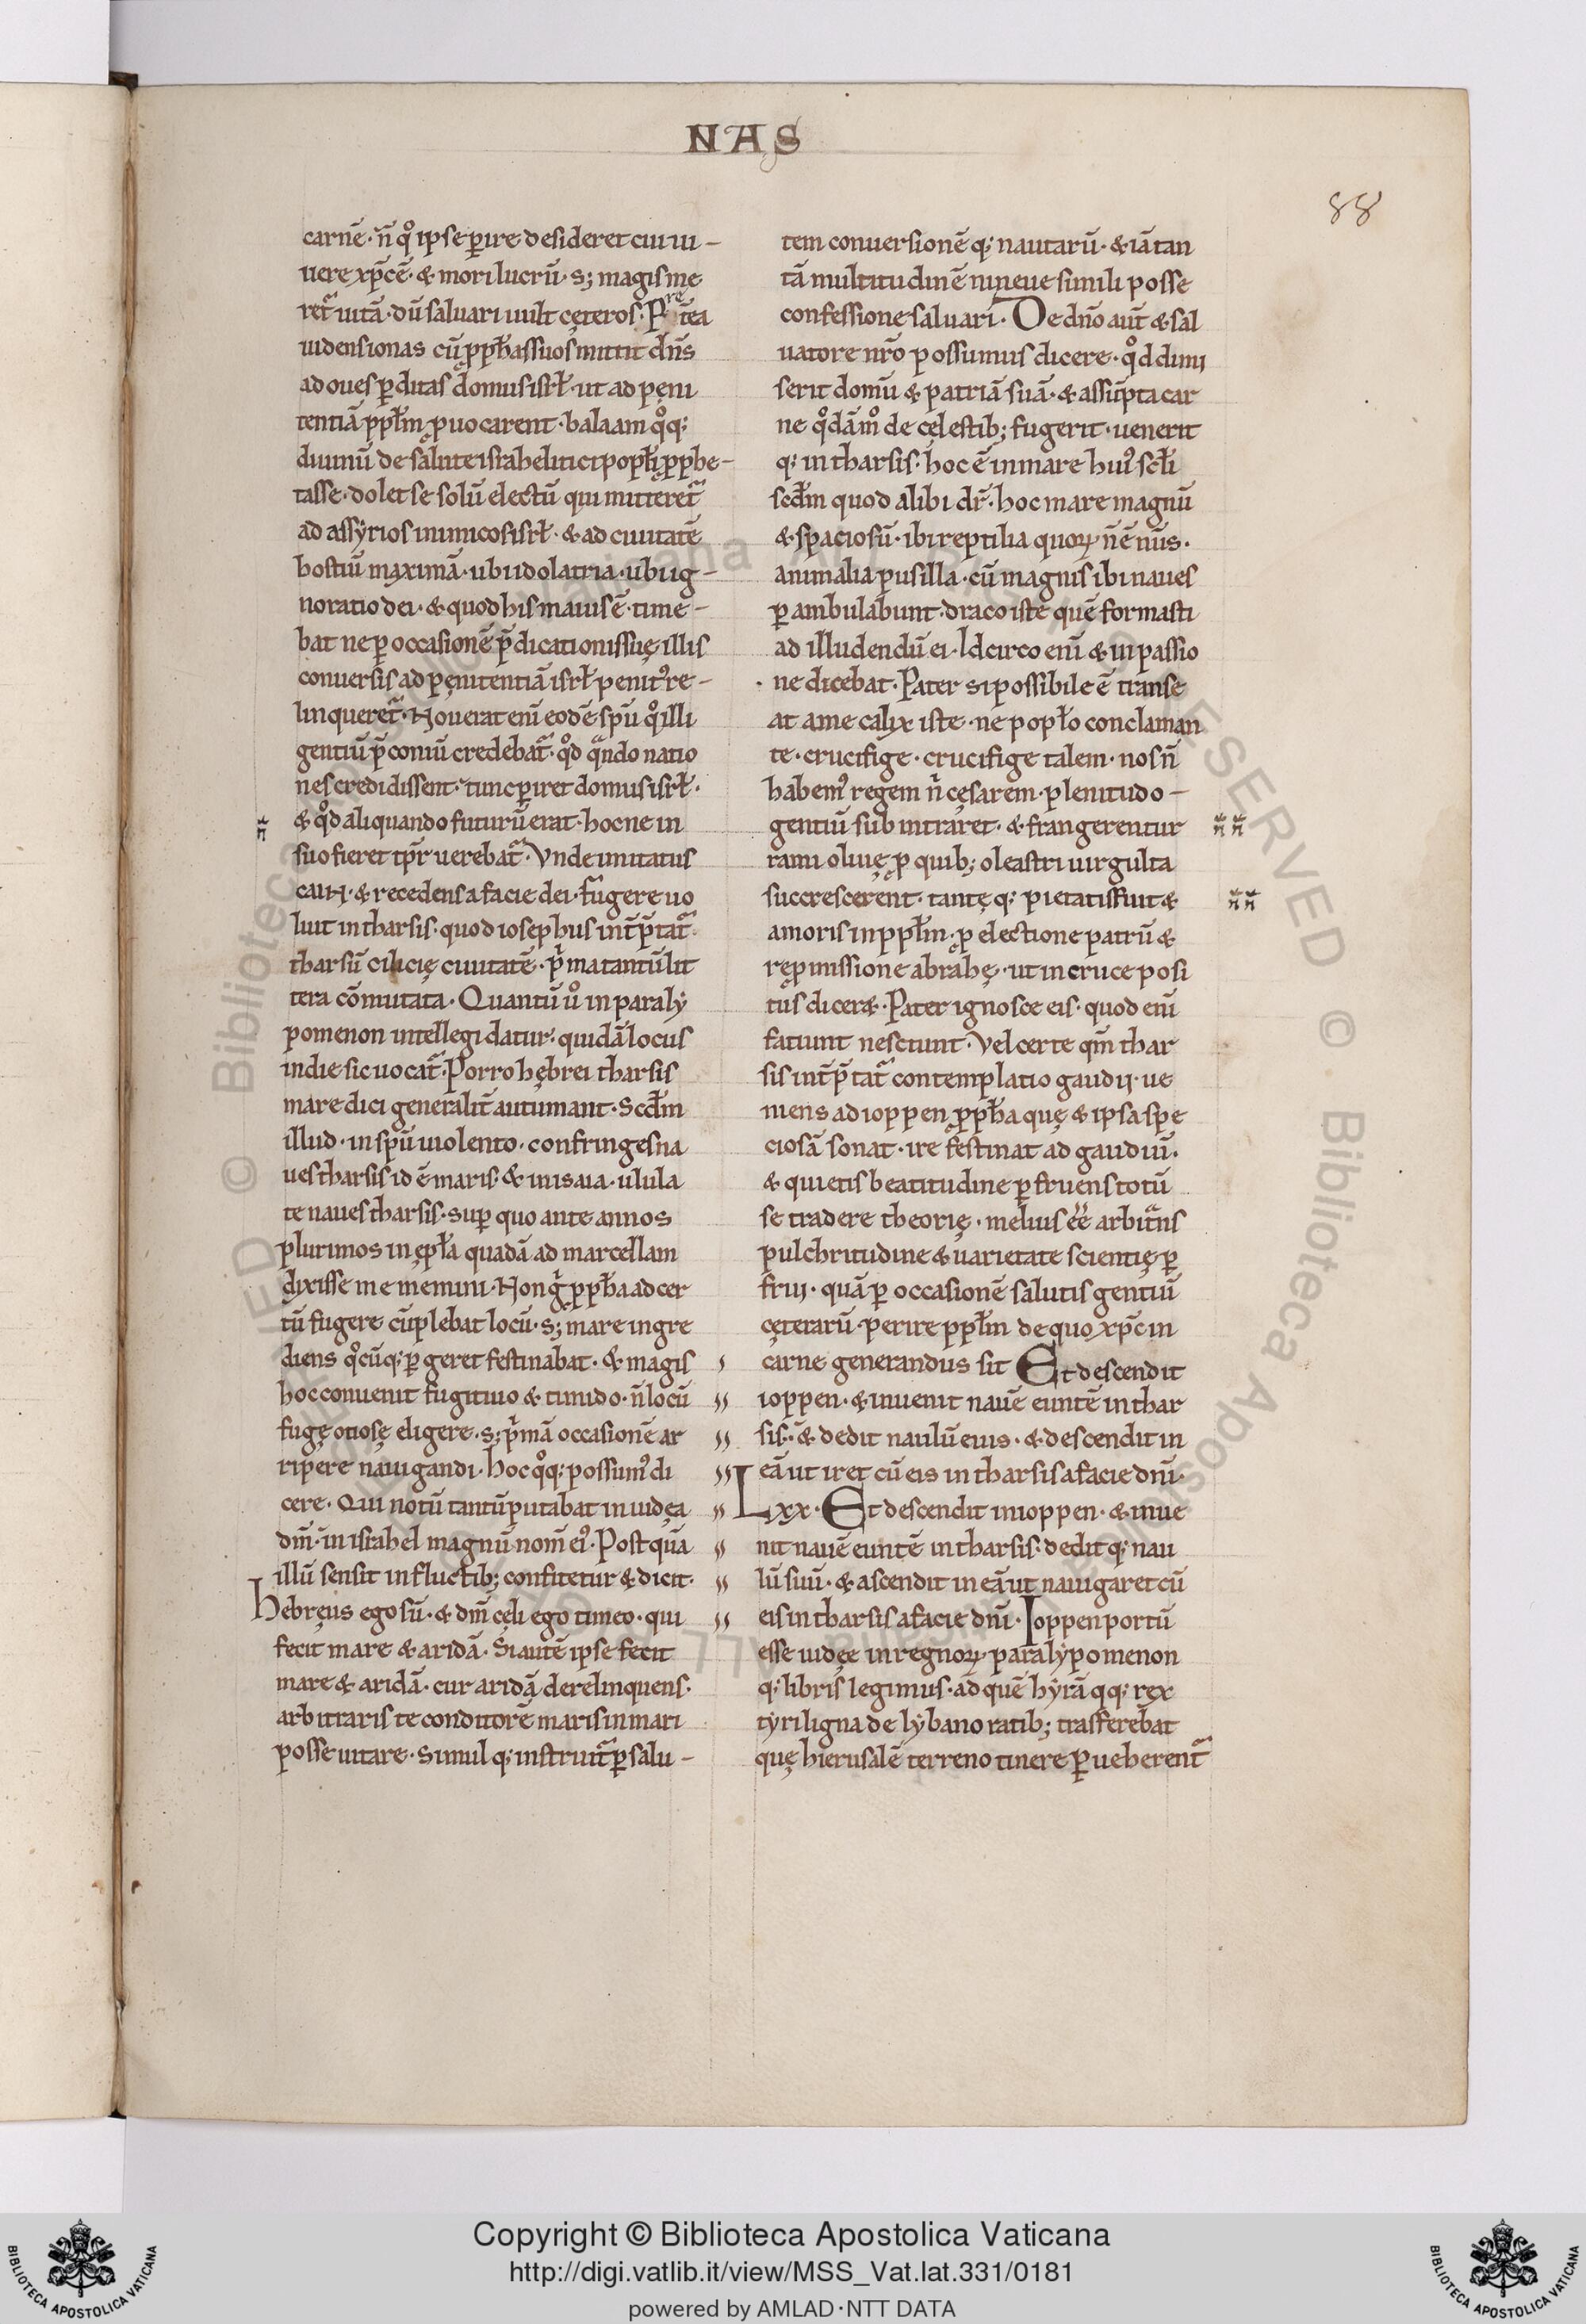 NAS
88
carnē· n̄ qͦ ipse ꝑire desideret cui ui-
uere xp̄c ē· & mori lucrū· s; magis me
ret᷑ uitā· dū saluari uult cęteros· Pretea
uidens ionas cū ꝓph̄as suos mittit dn̄s
ad oues ꝑditas domus isrł· ut ad pęni
tentiā ppłm ꝓuocarent· balaam qͦq;
diuinū de salute israhelitici popłi ꝓphe-
tasse· dolet se solū electū qui mitteret᷑
ad assẏrios inimicos isrł· & ad ciuitatē
hostiū maximā· ubi idolatria· ubi ig-
noratio dei· & quod his maius ē· time-
bat ne ꝑ occasionē p̄dicationis suę illis
conuersis ad pęnitentiā isrł penit᷒ re-
linqueret᷑· Nouerat eni̅ eodē sp̄u qͦ illi
gentiū p̄coniū credebat᷑· qͦd qᷓndo natio
nes credidissent· tunc ꝑiret domus isrł·
& qͦd aliquando futurū erat· hoc ne in
suo fieret tp̄r uerebat᷑· Vnde imitatus
cain· & recedens a facie dei· fugere uo
luit in tharsis· quod iosephus int̄p̄tat᷑·
tharsū cilicię ciuitatē· pⁱma tantū lit
tera cōmutata· Quantū uͦ in paralẏ
pomenon intellegi datur· quidā locus
indie sic uocat᷑· Porro hębrei tharsis
mare dici generalit̄ autumant· Scd̄m
illud· in sp̄u uiolento· confringes na
ues tharsis id ē maris· & in isaia· ulula
te naues tharsis· sup̄ quo ante annos
plurimos in ępła quadā ad marcellam
dixisse me memini· Non gͥ ꝓph̄a ad cer
tū fugere cūplebat locū· s; mare ingre
diens qͦcūq; ꝑgeret festinabat· & magis
hoc conuenit fugitiuo & timido· n̄ locū
fugę otiose eligere· s; pⁱmā occasionē ar
ripere nauigandi· hoc qͦq; possum᷒ di
cere· Qui notū tantū putabat in iudęa
dm̄· & in israhel magnū nom̄ ei᷒· Postquā
illū sensit in fluctib; confitetur & dicit·
Hebręus ego sū· & dm̄ cęli ego timeo· qui
fecit mare & aridā· Si autē ipse fecit
mare & aridā· cur aridā derelinquens·
arbitraris te conditorē maris in mari
posse uitare· Simul q; instruit᷑ ꝑ salu-
tem conuersionē q; nautarū· & iā tan
tā multitudinē nineue simili posse
confessione saluari· De dn̄o aut̄ & sal
uatore nr̄o possumus dicere· qͦd dimi
serit domū & patriā suā· & assūpta car
ne qͦdāmͦ de cęlestib; fugerit· uenerit
q; in tharsis· hoc ē in mare hui᷒ scłi
scd̄m quod alibi dr̄· hoc mare magnū
& spaciosū· ibi reptilia quoꝝ n̄ ē nūs·
animalia pusilla· cū magnis ibi naues
ꝑambulabunt· draco iste quē formasti
ad illudendū ei· Idcirco eni̅ & in passio
ne dicebat· Pater si possibile ē transe
at a me calix iste· ne popło conclaman
te· crucifige· crucifige talem· nos n̄
habem᷒ regem nⁱ cęsarem· plenitudo-
gentiū subintraret· & frangerentur
rami oliuę ꝓ quib; oleastri uirgulta
succrescerent· tantę q; pietatis fuit &
amoris in ppłm· ꝓ electione patrū &
repromissione abrahę· ut in cruce posi
tus dicer&· Pater ignosce eis· quod eni̅
faciunt nesciunt· Vel certe qm̄ thar
sis int̄p̄tat᷑ contemplatio gaudii· ue
niens ad ioppen ꝓph̄a quę & ipsa spe
ciosā sonat· ire festinat ad gaudiū·
& quietis beatitudine ꝑfruens totū
se tradere theorię· melius ēē arbitᷓns
pulchritudine & uarietate scientię ꝑ
frui· quā ꝑ occasionē salutis gentiū
cęterarū· perire ppłm de quo xp̄c in
carne generandus sit Et descendit
ioppen· & inuenit nauē euntē in thar
sis· & dedit naulū eius· & descendit in
eā ut iret cū eis in tharsis a facie dn̄i·
Lxx· Et descendit in ioppen· & inue
nit nauē euntē in tharsis· dedit q; nau
lū suū· & ascendit in eā ut nauigaret cū
eis in tharsis a facie dn̄i· Ioppen portū
esse iudęe in regnoꝝ· paralẏpomenon
q; libris legimus· ad quē hẏrā qq; rex
tẏri ligna de lẏbano ratib; trasferebat
quę hierusalē terreno itinere ꝑueherent᷑
Copyright © Biblioteca Apostolica Vaticana
http://digi.vatlib.it/view/MSS_Vat.lat.331/0181
powered by AMLAD·NTT DATA
BIBLIOTECA APOSTOLICA VATICANA
BIBLIOTECA APOSTOLICA VATICANA